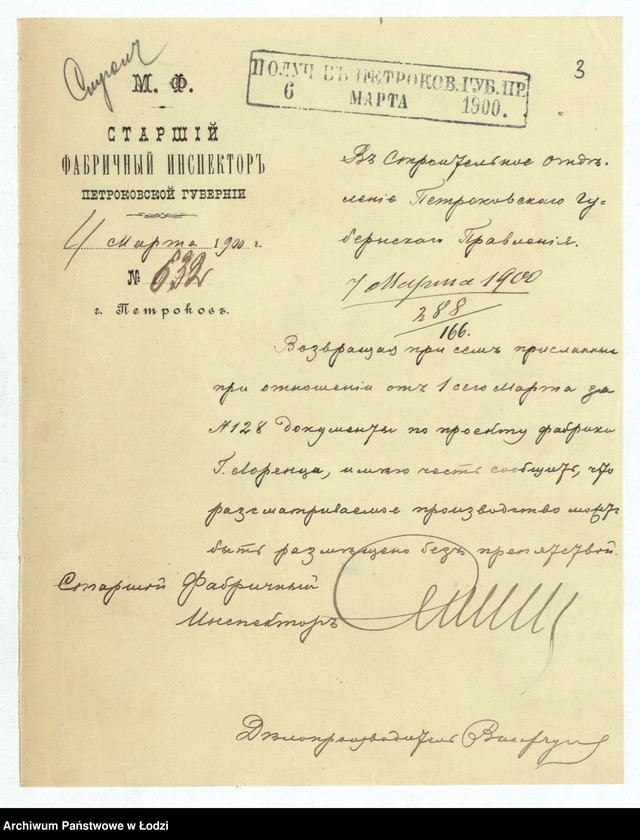 Строит
М. Ф.
СТАРШІЙ
ФАБРИЧНЫЙ ИНСПЕКТОРЪ
ПЕТРОКОВСКОЙ ГУБЕРНІИ
4 Марта 1900 г.
№ 632
г. Петроковъ.
ПОЛУЧ. ВЪ ПЕТРОКОВ. ГУБ. ПР.
6 МАРТА 1900.
3
Въ Строительное отдѣ-
леніе Петроковскаго Гу-
бернскаго Правленія.
7 Марта 1900
288
166.
Возвращая при семъ присланные
при отношеніи отъ 1 сего Марта за
№ 128 документы по проекту фабрики
Г. Лоренца, имѣю честь сообщить, что
разсматриваемое производство можетъ
быть размѣщено безъ препятствій.
Старшій Фабричный
Инспекторъ
Дѣлопроизводитель
Archiwum Państwowe w Łodzi